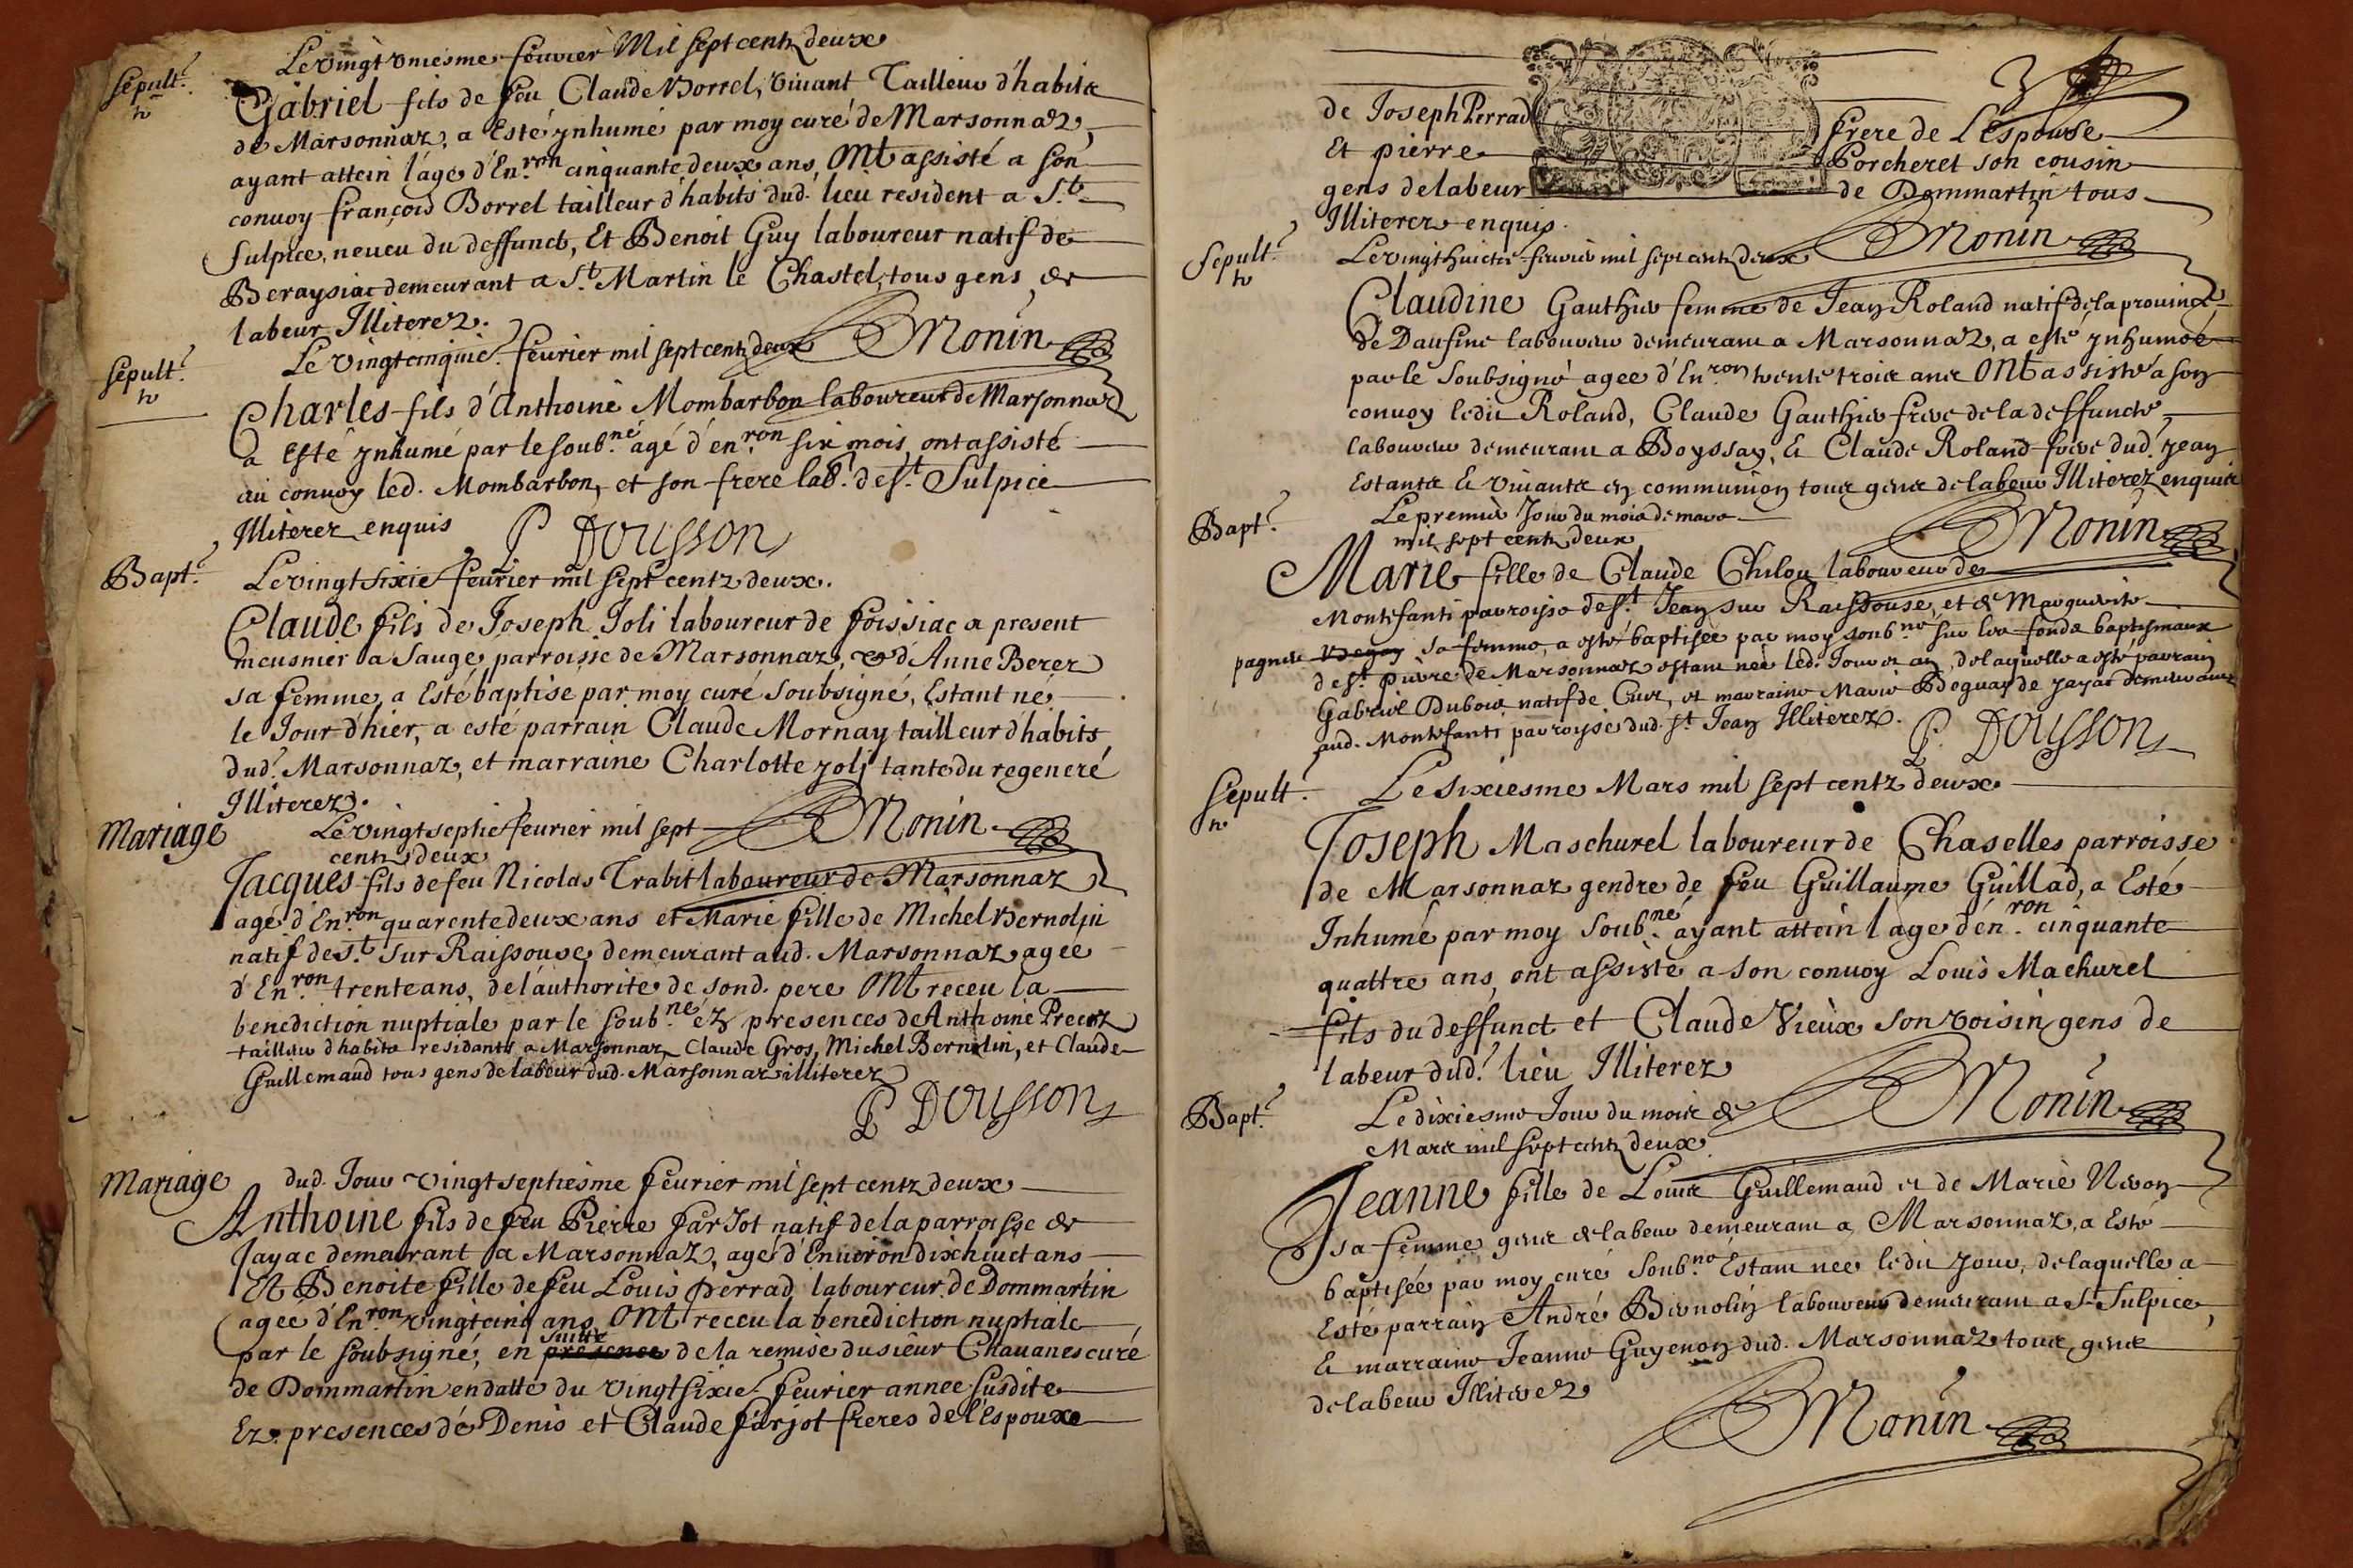 Sepult.re
Le vingt uniesme feuvrier Mil sept centz deux
Gabriel fils de feu Claude Borrel, vivant Tailleur d'habits
de Marsonnaz, a Esté ynhumé par moy curé de Marsonnaz,
ayant attein l'age d'En.ron cinquante deux ans, Ont assisté a son
convoy françois Borrel tailleur d'habits dud. lieu resident a S.t
Sulpice, neveu du deffunct, Et Benoit Guy laboureur natif de
Beraysiac demeurant a S.t Martin le Chastel, tous gens de
labeur Illiterez.
Monin
Sepult.re
Le vingtcinquie. fevrier mil sept centz deux
Charles fils d'Anthoine Mombarbon laboureur de Marsonnaz
a Esté ynhumé par le soub.né agé d'en.ron six mois, ont assisté
au convoy led. Mombarbon, et son frere lab.r de S.t Sulpice
Illiterez enquis
P Dousson
Bapt.e
Le vingt sixie. feuvrier mil sept centz deux.
Claude fils de Joseph Joli laboureur de foissiac a present
meusnier a Sauge, parroisse de Marsonnaz, & d'Anne Berer
sa femme, a Esté baptisé par moy curé soubsigné, Estant né
le Jour d'hier, a esté parrain Claude Mornay tailleur d'habits
dud.t Marsonnaz, et marraine Charlotte Joly tante du regeneré
Illiterez.
Monin
Mariage
Le vingt septie. feuvrier mil sept
centz deux
Jacques fils de feu Nicolas Trabit laboureur de Marsonnaz
agé d'En.ron quarente deux ans et Marie fille de Michel Bernolin
natif de S.t sur Raissouse, demeurant aud. Marsonnaz agee
d'En.ron trente ans, de l'authorité de sond. pere Ont receu la
benediction nuptiale par le soub.né éz presences de Anthoine Precoz
tailleur d'habits residants a Marsonnaz, Claude Gros, Michel Bernolin, et Claude
Guillemaud tous gens de labeur dud. Marsonnaz illiterez
P Dousson
Mariage
dud. Jour vingt septiesme fevrier mil sept centz deux
Anthoine fils de feu Pierre farjot natif de la parroisse de
Jayac demeurant a Marsonnaz, agé d'Environ dixhuict ans
Et Benoite fille de feu Louis Perrad laboureur de Dommartin
agee d'En.ron vingtcinq ans Ont receu la benediction nuptiale
suitte
par le soubsigné, en presence de la remise du sieur Chavanes curé
de Dommartin en datte du vingt sixie. fevrier annee susdite
Ez presences de Denis et Claude farjot freres de l'Espoux
3
de Joseph Perrad frere de L'Espouse
Et pierre Porcheret son cousin
gens de labeur de Dommartin tous
Illiterez enquis.
Monin
Sepult.re
Le vingt huictie. fevrier mil sept centz deux
Claudine Gauthier femme de Jean Roland natif de la province
de Daufiné laboureur demeurant a Marsonnaz, a esté ynhumée
par le Soubsigné agee d'En.ron trente trois ans Ont assisté a son
convoy ledit Roland, Claude Gauthier frere de la deffuncte
laboureur demeurant a Boyssay, & Claude Roland frere dud.t Jean
Estants & vivants en communion tous gens de labeur Illiterez enquis
Monin
Bapt.e
Le premier Jour du mois de mars
mil sept centz deux
Marie fille de Claude Chilou laboureur de
Montefanti parroisse de S.t Jean sur Raissouse, et de Marguerite
sa femme, a esté baptisée par moy soub.né sur les fonds baptismaux
de S.t pierre de Marsonnaz estant née led. Jour et an, de laquelle a esté parrain
Gabriel Dubois natif de Cuet, et marraine Marie de Jayac demeurant
aud. Montefanti parroisse dud. S.t Jean Illiterez.
P. Dousson
Sepult.re
Le sixiesme Mars mil sept centz deux
Joseph Maschurel laboureur de Chaselles parroisse
de Marsonnaz gendre de feu Guillaume Guillad, a Esté
Inhumé par moy Soub.né ayant attein l'age d'én.ron cinquante
quattre ans, ont assisté a son convoy Louis Machurel
fils du deffunct et Claude Vieux son voisin gens de
labeur dud.t lieu Illiterez
Monin
Bapt.e
Le dixiesme Jour du mois de
Mars mil sept centz deux
Jeanne fille de Louis Guillemaud et de Marie
sa femme gens de labeur demeurant a Marsonnaz, a Esté
baptisée par moy curé Soub.né Estant née ledit Jour, de laquelle a
Esté parrain André Bernolin laboureur demeurant a S.t Sulpice,
& marraine Jeanne Guyenon dud. Marsonnaz tous gens
de labeur Illiterez
Monin